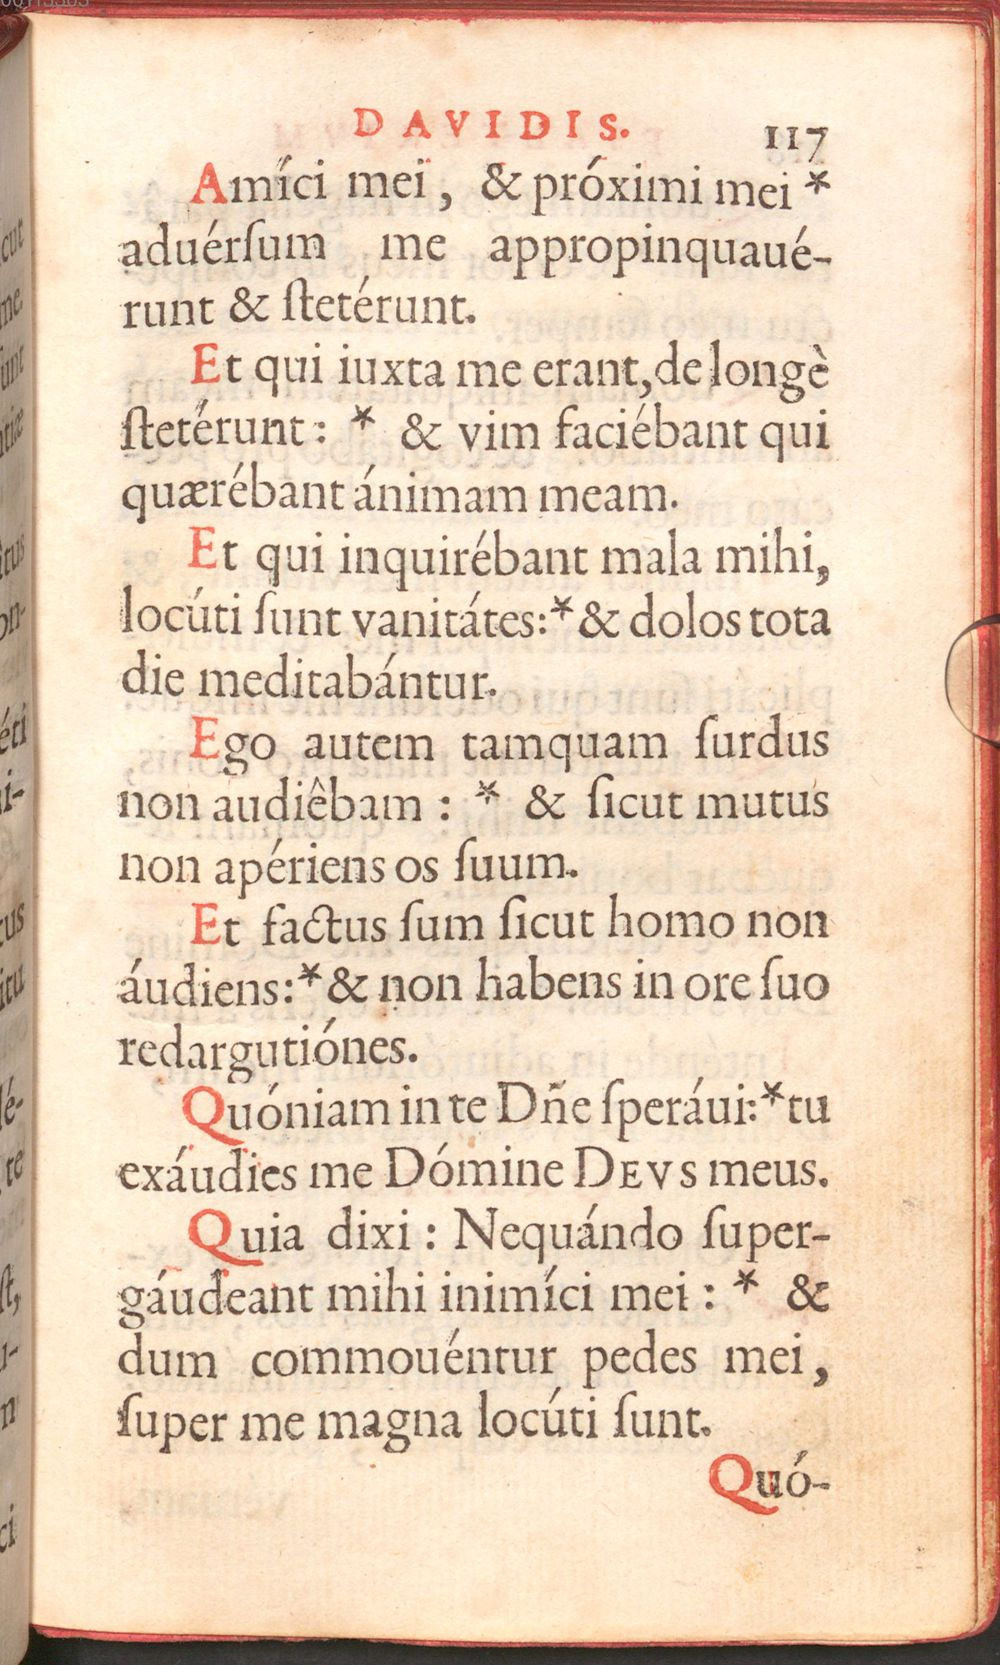 DAVIDIS. 117
Amíci mei, & próximi mei *
aduérſum me appropinquaué-
runt & ſtetérunt.
Et qui iuxta me erant, de longè
ſtetérunt: * & vim faciébant qui
quærébant ánimam meam.
Et qui inquirébant mala mihi,
locúti ſunt vanitátes: * & dolos tota
die meditabántur.
Ego autem tamquam ſurdus
non audiêbam : * & ſicut mutus
non apériens os ſuum.
Et factus ſum ſicut homo non
áudiens: * & non habens in ore ſuo
redargutiónes.
Quóniam in te Dñe ſperáui: * tu
exáudies me Dómine DEVS meus.
Quia dixi : Nequándo ſuper-
gáudeant mihi inimíci mei : * &
dum commouéntur pedes mei,
ſuper me magna locúti ſunt.
Quó-